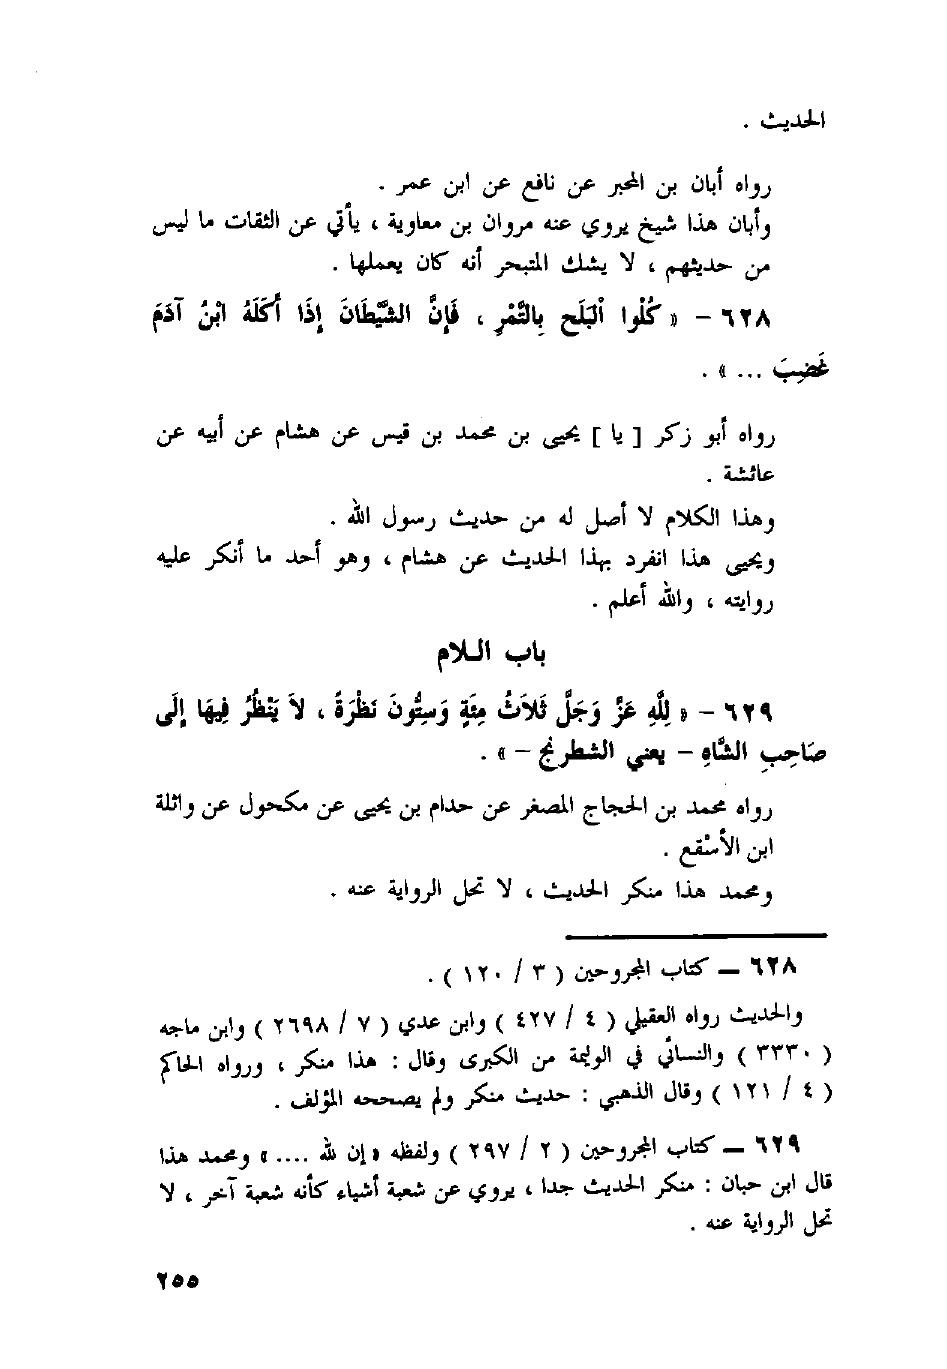 الحديث .
رواه أبان بن المحبر عن نافع عن ابن عمر .
وأبان هذا شيخ يروي عنه مروان بن معاوية ، يأتي عن الثقات ما ليس
من حديثهم ، لا يشك المتبحر أنه كان يعملها .
٦٢٨ - « كُلُوا الْبَلَح بِالتَّمْرِ ، فَإِنَّ الشَّيْطَانَ إِذَا أَكَلَهُ ابْنُ آدَمَ
غَضِبَ ... » .
رواه أبو زكر [ يا ] يحيى بن محمد بن قيس عن هشام عن أبيه عن
عائشة .
وهذا الكلام لا أصل له من حديث رسول الله .
ويحيى هذا انفرد بهذا الحديث عن هشام ، وهو أحد ما أنكر عليه
روايته ، والله أعلم .
باب اللام
٦٢٩ - « لِلَّهِ عَزَّ وَجَلَّ ثَلاَثُ مِئَةٍ وَسِتُّونَ نَظْرَةً ، لاَ يَنْظُرُ فِيهَا إِلَى
صَاحِبِ الشَّاهِ - يعني الشطرنج - » .
رواه محمد بن الحجاج المصغر عن حدام بن يحيى عن مكحول عن واثلة
ابن الأسْقع .
ومحمد هذا منكر الحديث ، لا تحل الرواية عنه .
٦٢٨ — كتاب المجروحين ( ٣ / ١٢٠ ) .
والحديث رواه العقيلي ( ٤ / ٤٢٧ ) وابن عدي ( ٧ / ٢٦٩٨ ) وابن ماجه
( ٣٣٣٠ ) والنسائي في الوليمة من الكبرى وقال : هذا منكر ، ورواه الحاكم
( ٤ / ١٢١ ) وقال الذهبي : حديث منكر ولم يصححه المؤلف .
٦٢٩ — كتاب المجروحين ( ٢ / ٢٩٧ ) ولفظه «إن لله .... » ومحمد هذا
قال ابن حبان : منكر الحديث جدا ، يروي عن شعبة أشياء كأنه شعبة آخر ، لا
تحل الرواية عنه .
٢٥٥